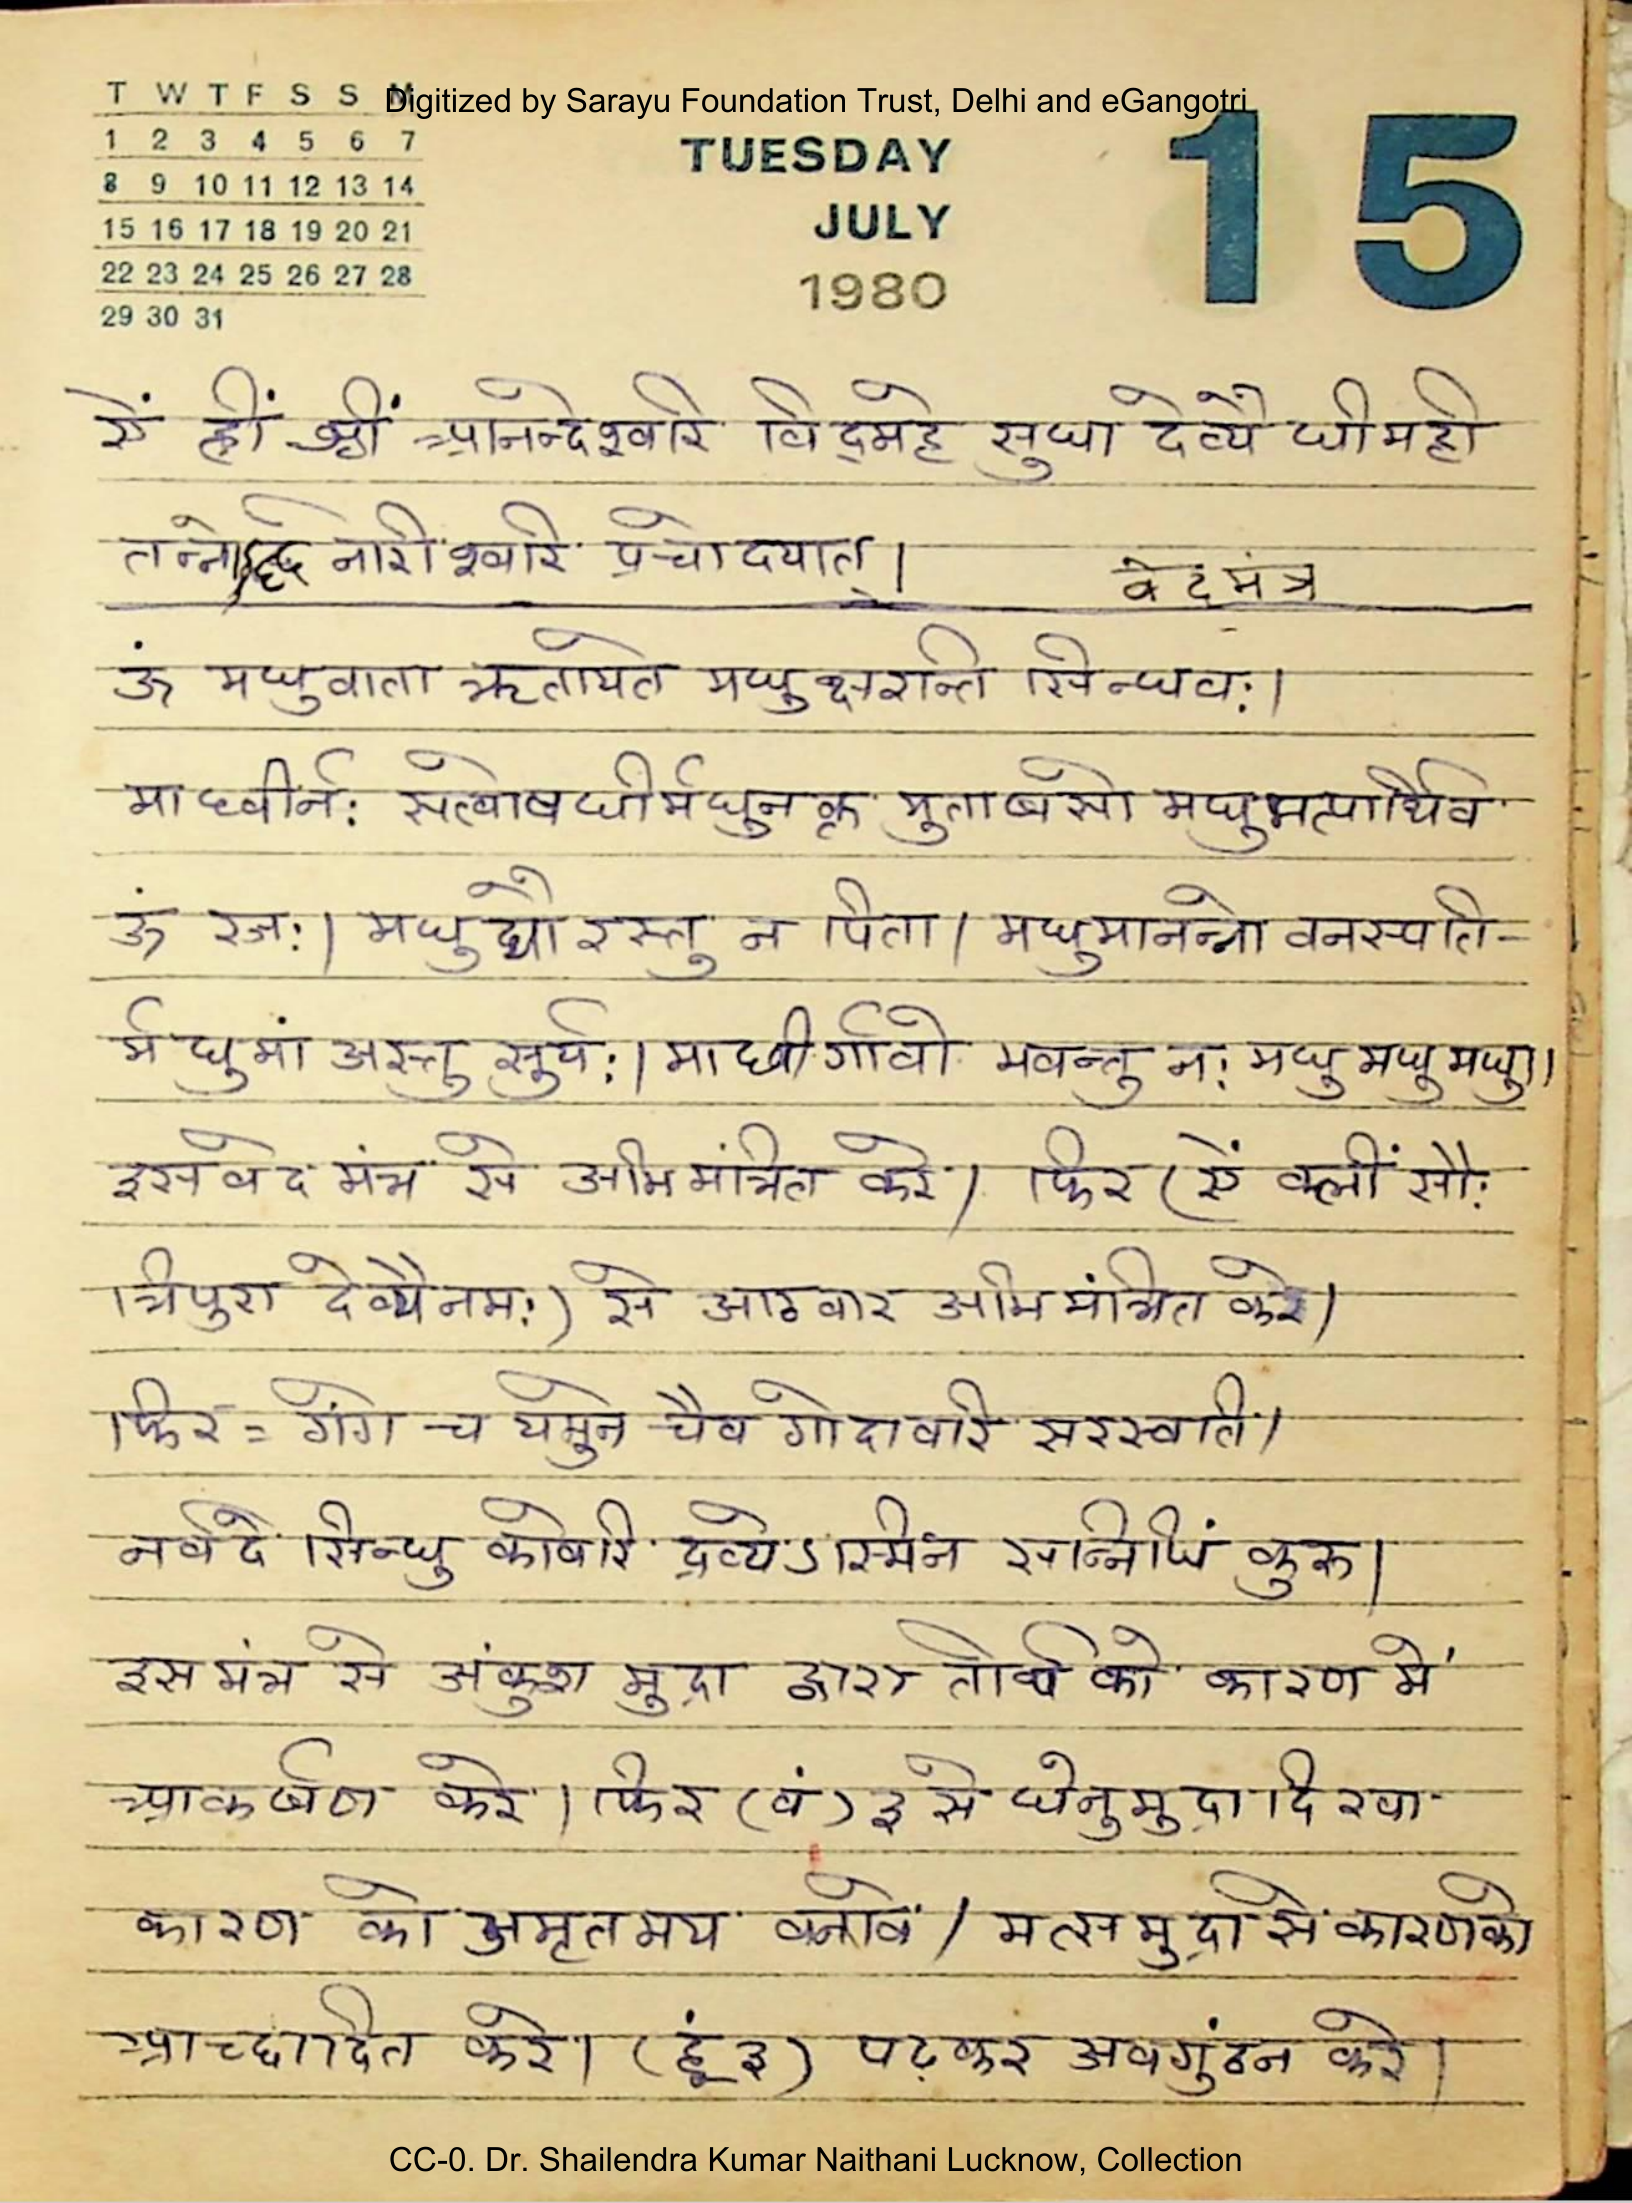 Digitized by Sarayu Foundation Trust, Delhi and eGangotri
T W T F S S M
1 2 3 4 5 6 7
8 9 10 11 12 13 14
15 16 17 18 19 20 21
22 23 24 25 26 27 28
29 30 31
TUESDAY
JULY
1980
15
ऐं ह्रीं श्रीं आनन्देश्वरि विद्महे सुधा देव्यै धीमही
तन्नोर्द्ध नारीश्वरि प्रचोदयात् |
वेद मंत्र
ॐ मधुवाता ऋतायते मधुक्षरन्ति सिन्धवः |
माध्वीर्नः सत्वोषधीर्मधुनक्त मुताषसो मधुमत्पार्थिव
ॐ रजः | मधुद्यौरस्तु न पिता | मधुमानन्नो वनस्पति-
र्मधुमां अस्तु सुर्यः | माध्वीर्गावो भवन्तु नः मधु मधु मधु ||
इस वेद मंत्र से अभिमंत्रित करे | फिर (ऐं क्लीं सौः
त्रिपुरा देव्यै नमः) से आठवार अभिमंत्रित करे |
फिर = गंगे च यमुने चैव गोदावरि सरस्वति |
नर्वदे सिन्धु कावेरि द्रव्येऽस्मिन सन्निधिं कुरु |
इस मंत्र से अंकुश मुद्रा द्वारा तीर्थ को कारण में
आकर्षण करे | फिर (वं) ३ से धेनुमुद्रा दिखा
कारण को अमृतमय बनावे | मत्स मुद्रा से कारण को
आच्छादित करे | (हूं ३) पढ़कर अवगुंठन करे |
CC-0. Dr. Shailendra Kumar Naithani Lucknow, Collection